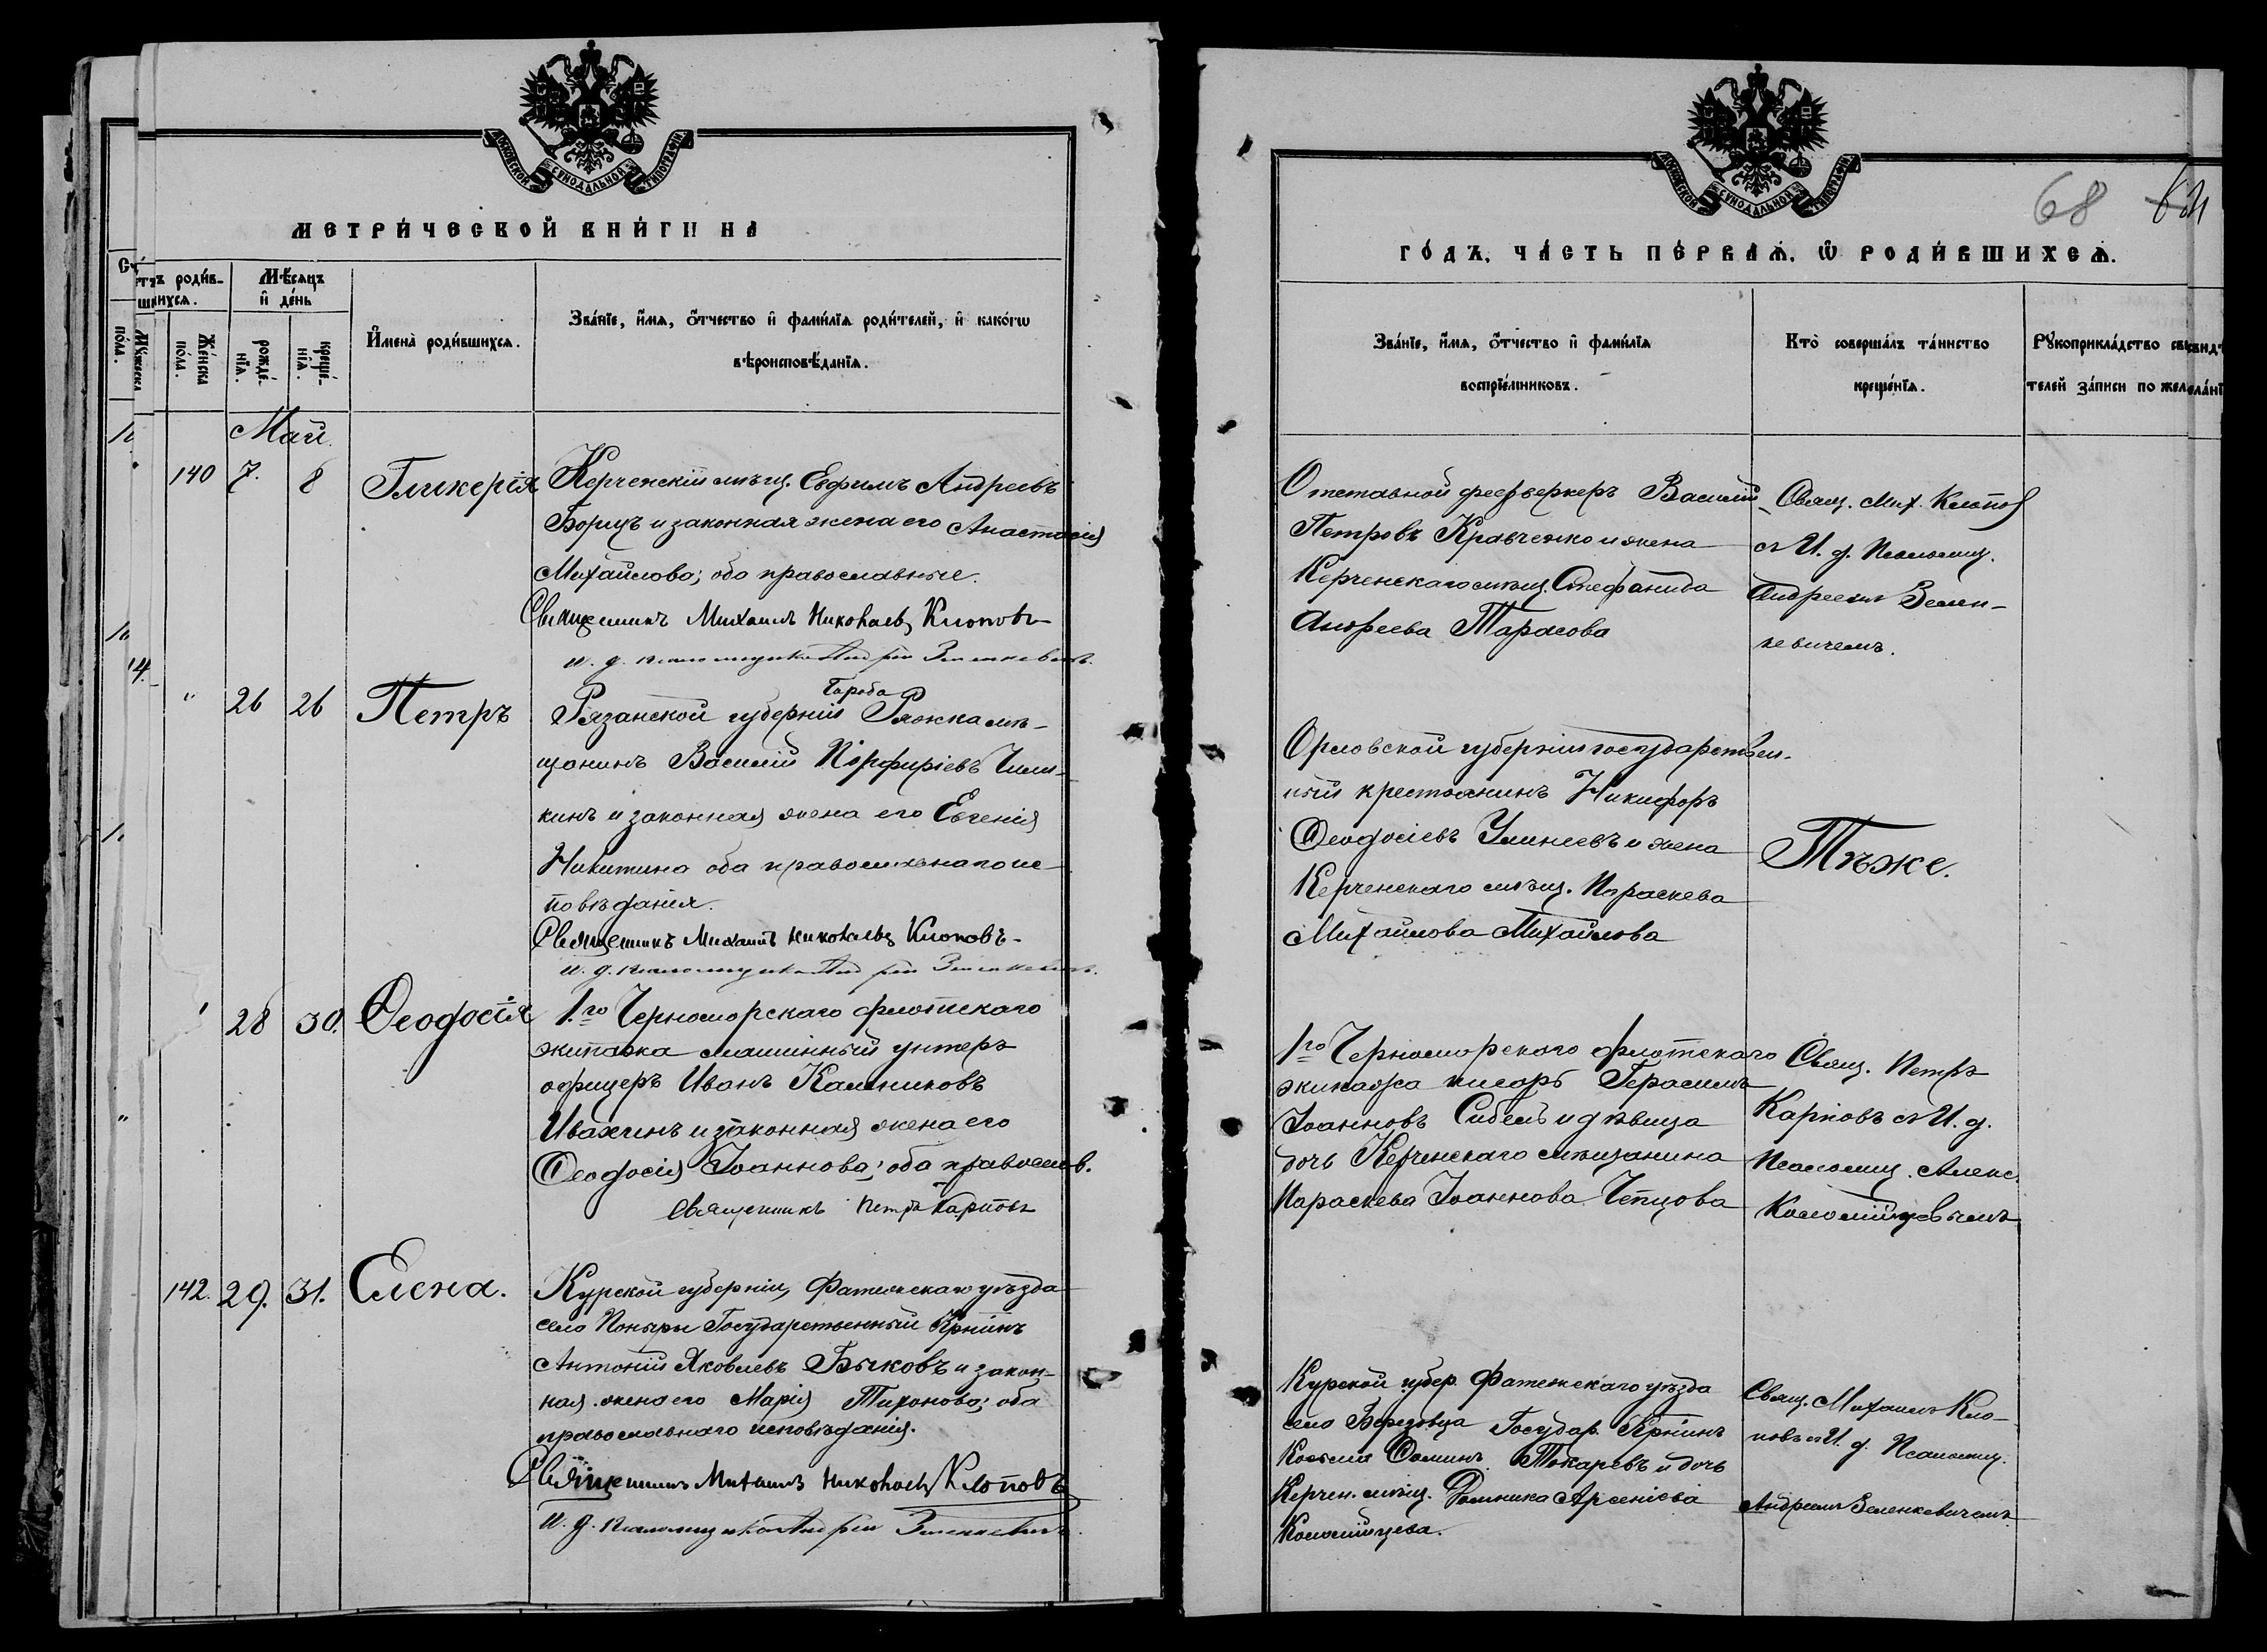 МОСКОВСКОЙ СѴНОДАЛЬНОЙ ТИПОГРАФІИ
МЕТРИ́ЧЕСКОЙ КНИ́ГИ НА
роди́в-
шихсѧ.
Мѣ́сѧцъ
и҆ де́нь
Же́нска
по́ла.
рожде́-
нїѧ.
креще́-
нїѧ.
И҆мена̀ роди́вшихсѧ.
Зва́нїе, и҆́мѧ, ѻ҆́тчество и҆ фами́лїѧ роди́телей, и҆ како́гѡ
вѣроисповѣ́данїѧ.
Май.
140 7. 8 Гликерія
Керченскій мѣщ. Евфимъ Андреевъ
Борщъ и законная жена его Анастасія
Михайлова; оба православные.
Священникъ Михаилъ Николаевъ Клоповъ
и. д. псаломщика Андрей Зеленкевичъ.
14
" 26 26 Петръ
Города
Рязанской губерніи Ряжка мѣ-
щанинъ Василій Порфиріевъ Чили-
кинъ и законная жена его Евгенія
Никитина оба православнаго ис-
повѣданія.
Священникъ Михаилъ Николаевъ Клоповъ-
и. д. псаломщика Андрей Зеленкевичъ.
28 30. Ѳеодосія
1го Черноморскаго флотскаго
экипажа машинный унтеръ
офицеръ Иванъ Калинниковъ
Ивахинъ и законная жена его
Ѳеодосія Іоаннова; оба православ.
Священникъ Петръ Карповъ
142. 29. 31. Елена.
Курской губерніи, Фатежскаго уѣзда
село Поныри Государственный Крнинъ
Антоній Яковлевъ Бычковъ и закон-
ная жена его Марія Тихонова; оба
православнаго исповѣданія.
Священникъ Михаилъ Николаевъ Клоповъ
и. д. псаломщика Андрей Зеленкевичъ
МОСКОВСКОЙ СѴНОДАЛЬНОЙ ТИПОГРАФІИ
68
ГО́ДЪ, ЧА́СТЬ ПЕ́РВАѦ, Ѡ҆ РОДИ́ВШИХСѦ.
Зва́нїе, и҆́мѧ, ѻ҆́тчество и҆ фами́лїѧ
воспрїе́мниковъ.
Кто̀ соверша́лъ та́инство
креще́нїѧ.
Рꙋкоприкла́дство свидѣ-
телей за́писи по жела́нї
Отставной феерверкеръ Василій
Петровъ Кравченко и жена
Керченскаго мѣщ. Стефанида
Андреева Тарасова
Свящ. Мих. Клопов
съ И. д. Псаломщ.
Андреемъ Зелен-
кевичемъ.
Орловской губерніи государствен-
ный крестьянинъ Никифоръ
Ѳеодосіевъ Улинеевъ и жена
Керченскаго мѣщ. Параскева
Михайлова Михайлова
Тѣже.
1го Черноморскаго флотскаго
экипажа писарь Герасимъ
Іоанновъ Сибель и дѣвица
дочь Керченскаго мѣщанина
Параскева Іоаннова Чепцова
Свящ. Петръ
Карповъ съ И. д.
Псаломщ. Алекс.
Коломійцевымъ
Курской губер. Фатежскаго уѣзда
село Березовца Государ. Крнинъ
Косьма Ѳоминъ Токаревъ и дочь
Керчен. мѣщ. Домника Арсеніева
Коломійцева.
Свящ. Михаилъ Кло-
повъ съ И. д. Псаломщ.
Андреемъ Зеленкевичемъ